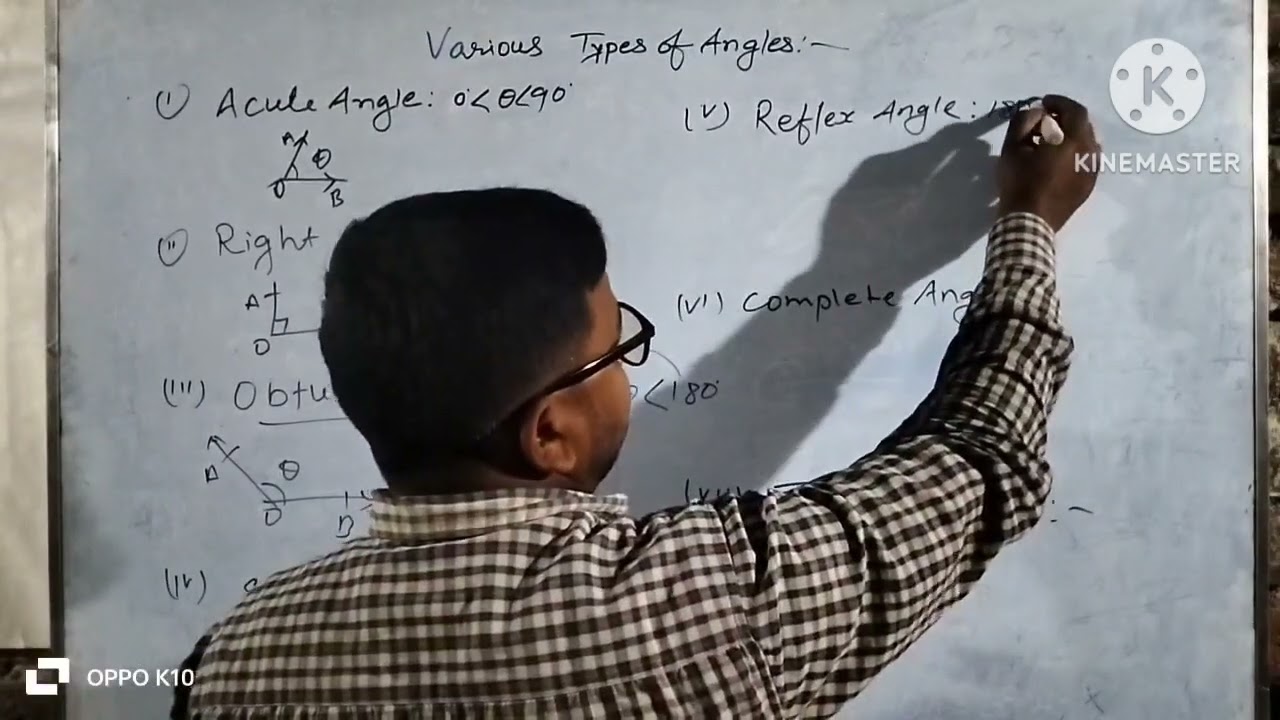 Various Types of Angles:-
(i) Acute Angle: 0°<θ<90°
A
θ
O
B
(ii) Right
A
O
(iii) Obtu
<180°
A
θ
O
B
(iv)
(v) Reflex Angle: 180
(vi) Complete Ang
:-
K
KINEMASTER
OPPO K10